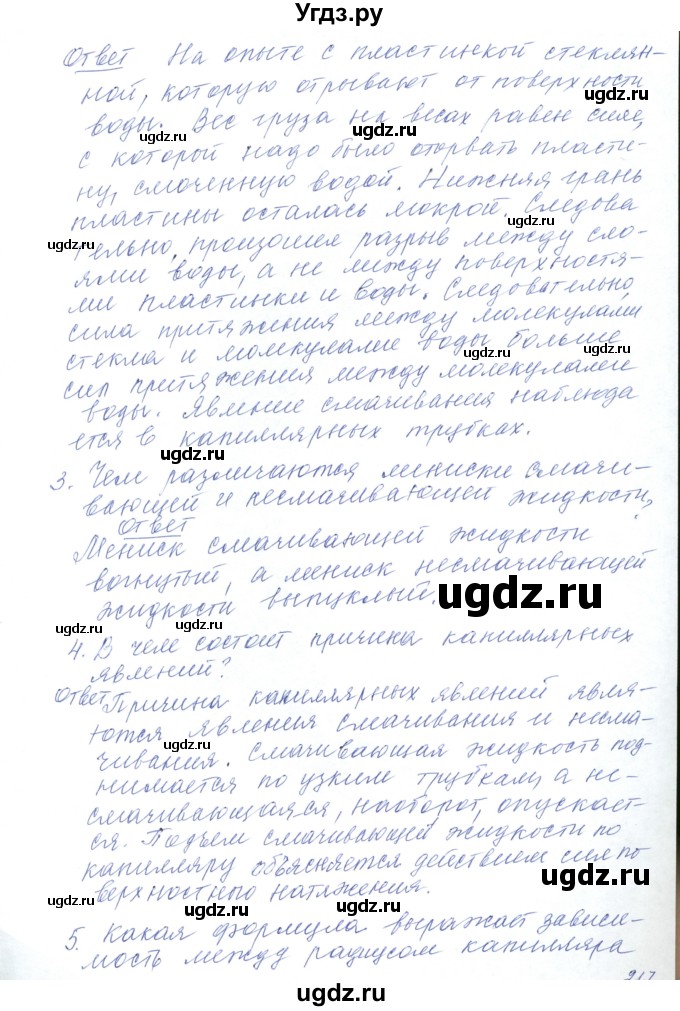 Угдз.ру
Ответ На опыте с пластинкой стеклян-
ной, которую отрывают от поверхности
ugdz.ru
воды. Вес груза на весах равен силе,
ugdz.ru ugdz.ru
с которой надо было оторвать пласти-
ну, смоченную водой. Нижняя грань
ugdz.ru
пластины осталась мокрой. Следова
ugdz.ru ugdz.ru
тельно, произошел разрыв между сло-
ями воды, а не между поверхностя-
ми пластинки и воды. Следовательно,
ugdz.ru
сила притяжения между молекулами
стекла и молекулами воды больше
ugdz.ru ugdz.ru
сил притяжения между молекулами
воды. Явление смачивания наблюда
ugdz.ru
ется в капиллярных трубках.
3. Чем различаются мениски смачи-
ugdz.ru
вающей и несмачивающей жидкости?
Ответ
ugdz.ru
Мениск смачивающей жидкости
вогнутый, а мениск несмачивающей
жидкости выпуклый.
ugdz.ru ugdz.ru
4. В чем состоит причина капиллярных
явлений?
ugdz.ru
Ответ Причина капиллярных явлений явля-
ются явления смачивания и несма-
ugdz.ru
чивания. Смачивающая жидкость под-
нимается по узким трубкам, а не-
ugdz.ru
смачивающаяся, наоборот, опускает-
ся. Подъем смачивающей жидкости по
ugdz.ru
капилляру объясняется действием сил по
верхностного натяжения.
ugdz.ru ugdz.ru
5. Какая формула выражает зависи-
мость между радиусом капилляра
ugdz.ru
217
ugdz.ru